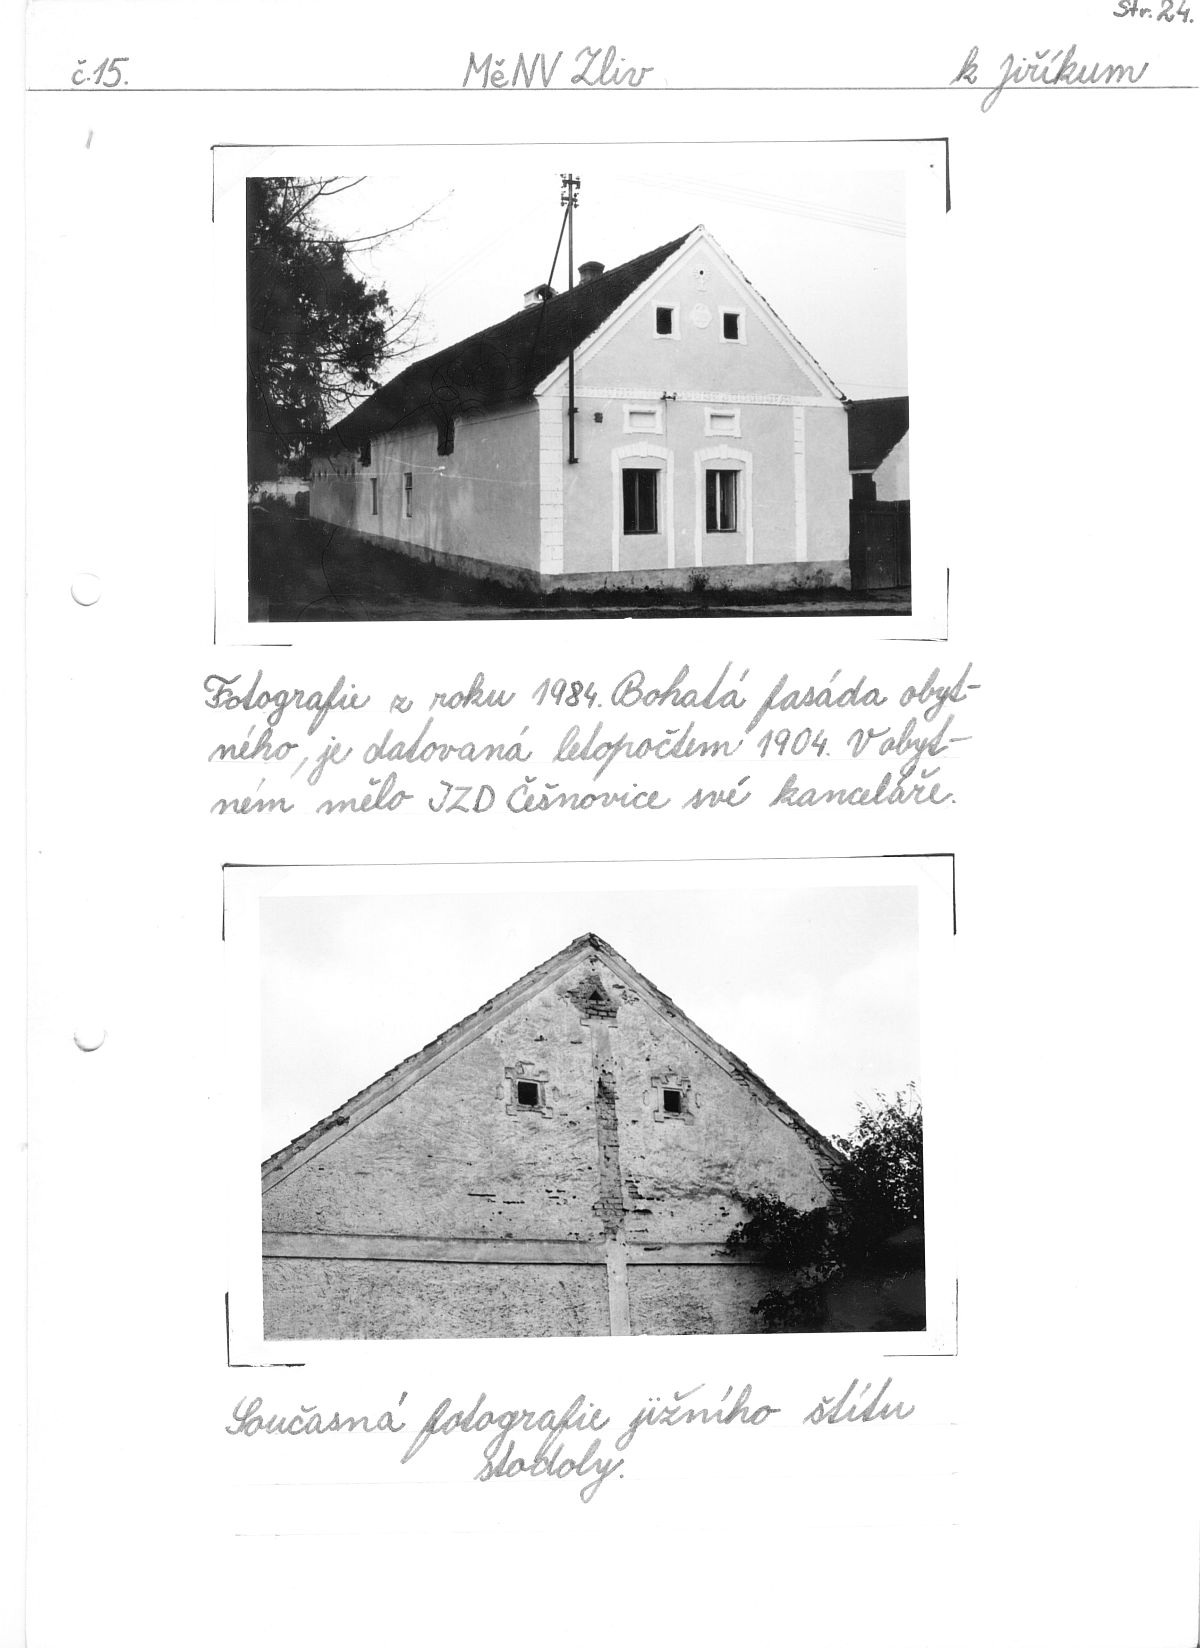 Str. 24.
č.15. MěNV Zliv k Jiříkum
Fotografie z roku 1984. Bohatá fasáda obyt-
ného, je datovaná letopočtem 1904. V obyt-
ném mělo JZD Češnovice své kanceláře.
Současná fotografie jižního štítu
stodoly.